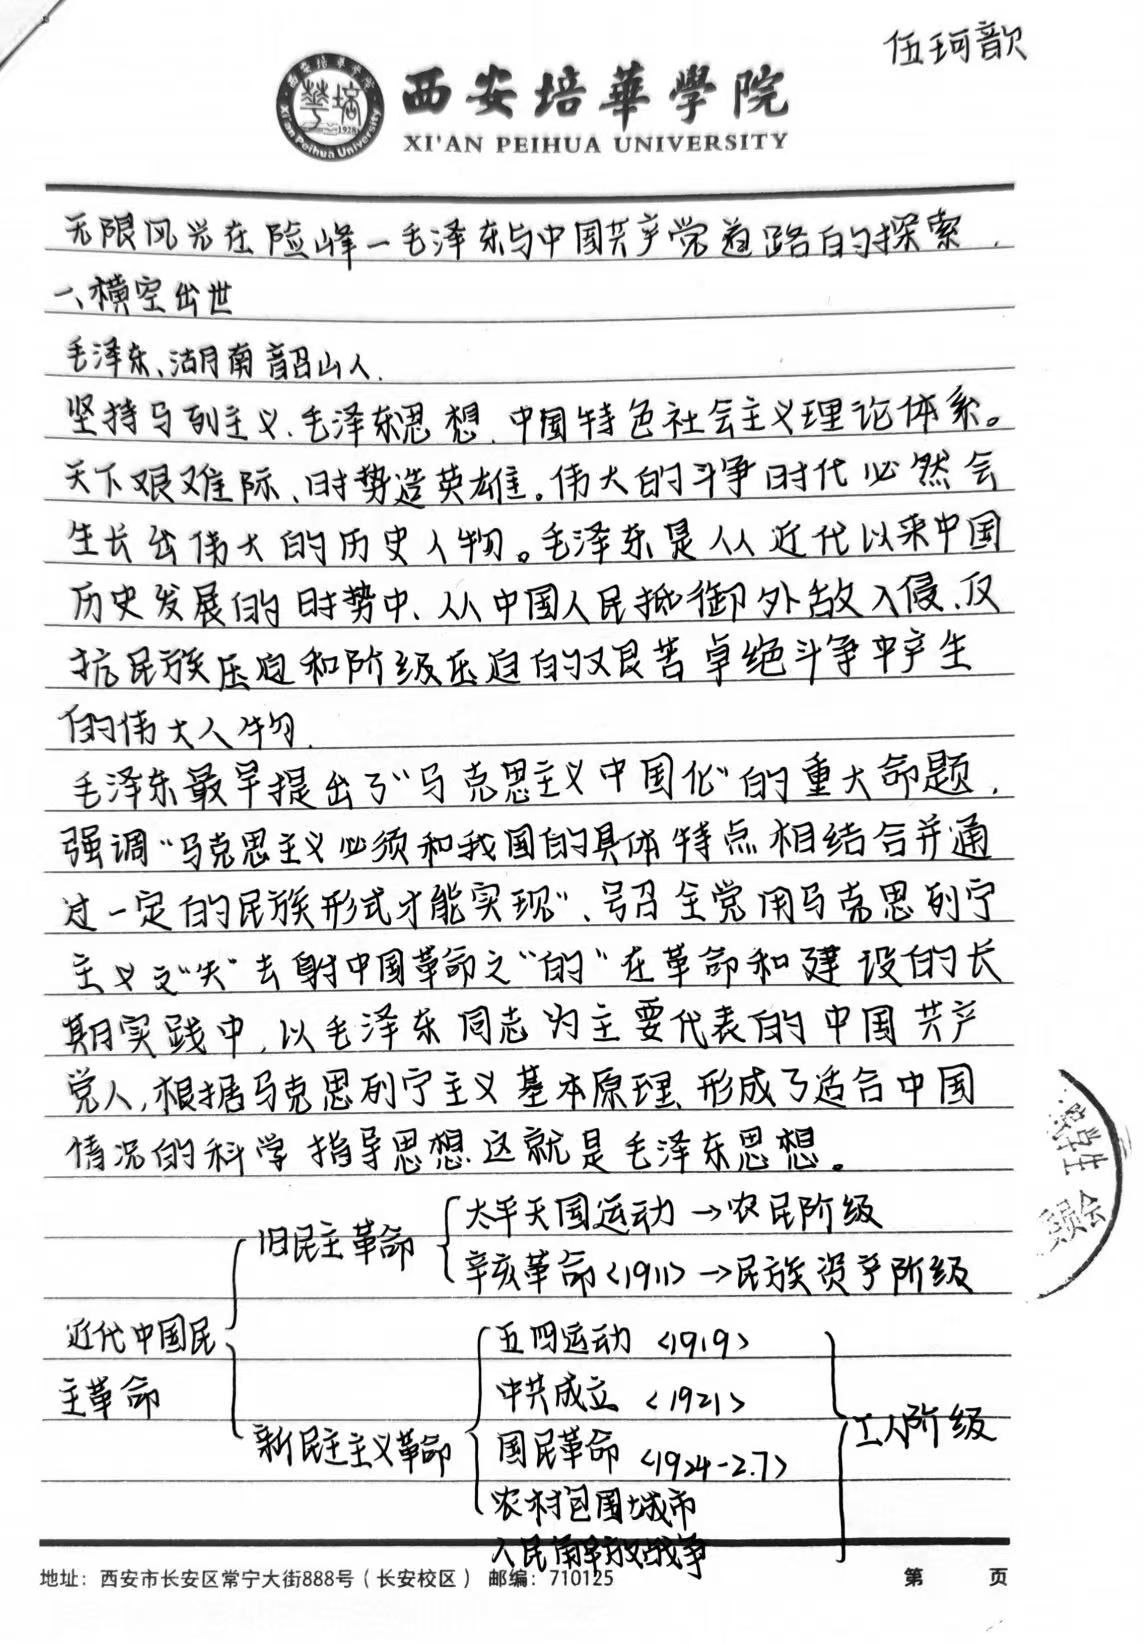 伍珂歆
西安培華學院
XI'AN PEIHUA UNIVERSITY
西安培华学院
Xi'an Peihua University
1928
无限风光在险峰—毛泽东与中国共产党道路的探索.
一、横空出世
毛泽东、湖南韶山人.
坚持马列主义、毛泽东思想、中国特色社会主义理论体系。
天下艰难际、时势造英雄。伟大的斗争时代必然会
生长出伟大的历史人物。毛泽东是从近代以来中国
历史发展的时势中、从中国人民抵御外敌入侵、反
抗民族压迫和阶级压迫的艰苦卓绝斗争中产生
的伟大人物.
毛泽东最早提出了“马克思主义中国化”的重大命题.
强调“马克思主义必须和我国的具体特点相结合并通
过一定的民族形式才能实现”、号召全党用马克思列宁
主义之“矢”去射中国革命之“的”在革命和建设的长
期实践中,以毛泽东同志为主要代表的中国共产
党人,根据马克思列宁主义基本原理、形成了适合中国
情况的科学指导思想.这就是毛泽东思想。
近代中国民
主革命
旧民主革命
太平天国运动→农民阶级
辛亥革命<1911>→民族资产阶级
新民主主义革命
五四运动 <1919>
中共成立 <1921>
国民革命 <1924-2.7>
农村包围城市
人民解放战争
工人阶级
学生
委员会
地址：西安市长安区常宁大街888号（长安校区） 邮编：710125 第 页